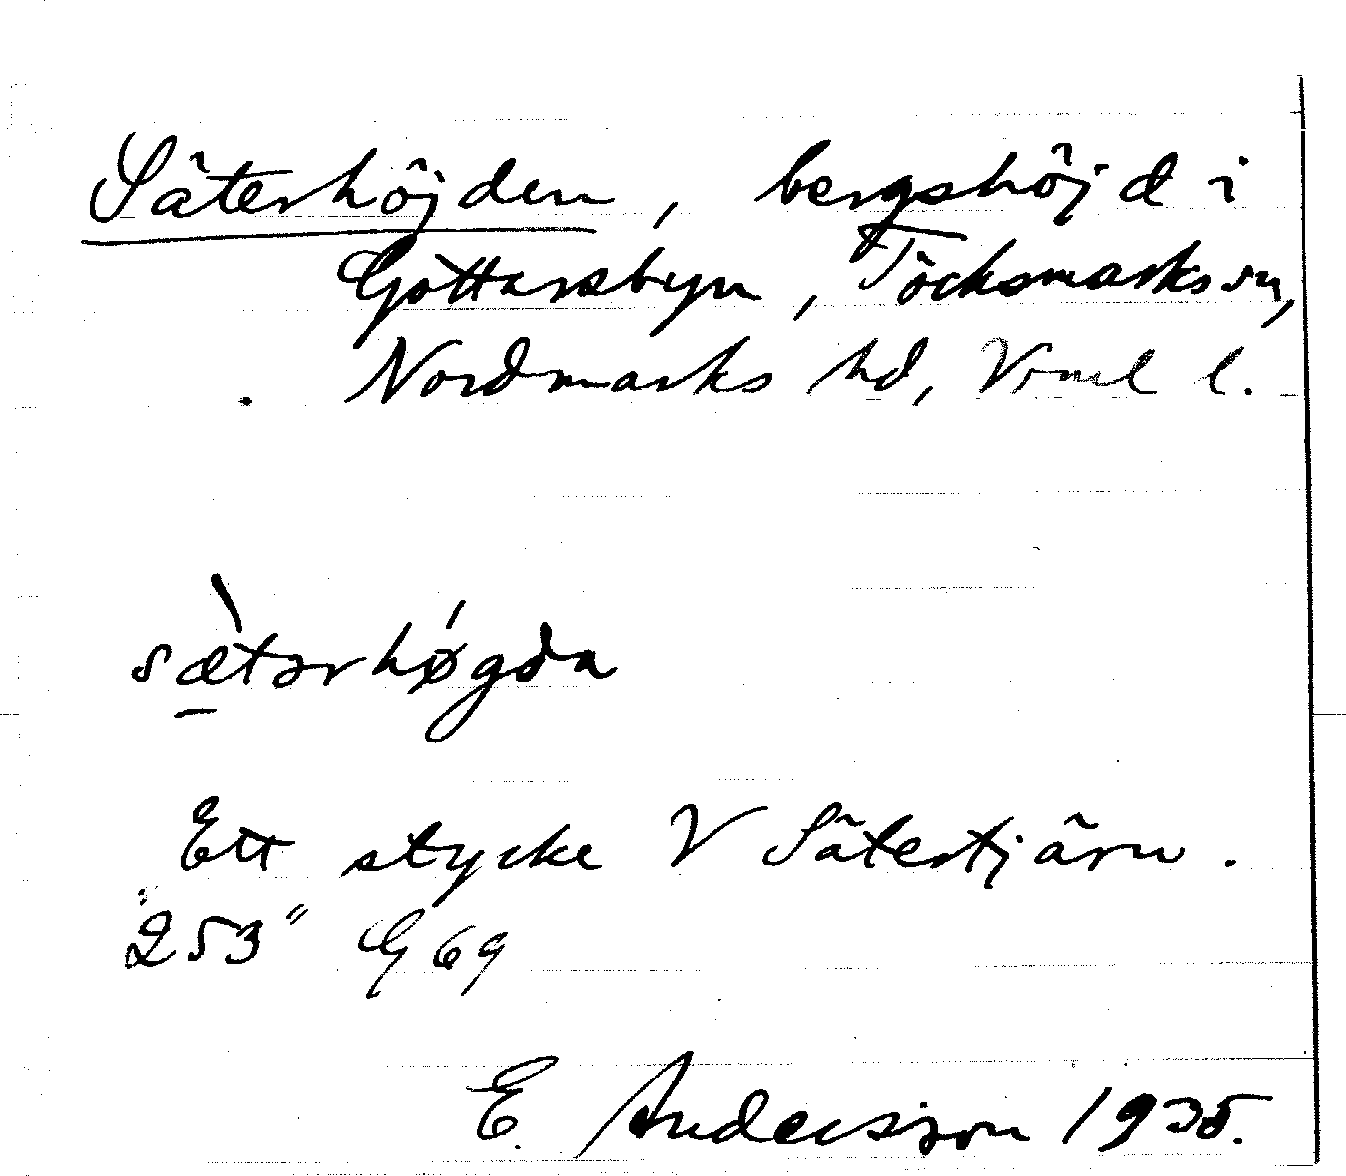 Säterhöjden, bergshöjd i
Gottarsbyn, Töcksmarks sn,
Nordmarks hd, Vrml l.
sæ̠̀tərhǿgda
Ett stycke V Sätertjärn.
"253" G 69
E. Andersson 1935.